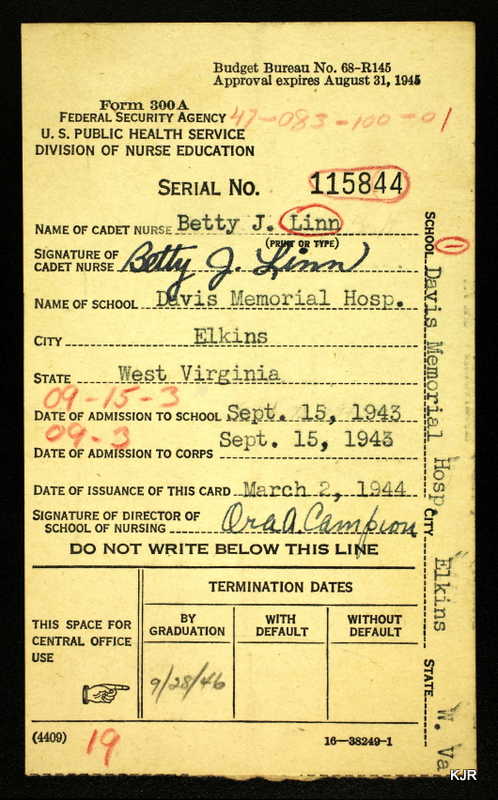 Budget Bureau No. 68-R145
Approval expires August 31, 1945
Form 300A
FEDERAL SECURITY AGENCY 47-083-100-01
U. S. PUBLIC HEALTH SERVICE
DIVISION OF NURSE EDUCATION
SERIAL NO. 115844
NAME OF CADET NURSE Betty J. Linn
(PRINT OR TYPE)
SIGNATURE OF CADET NURSE Betty J. Linn
NAME OF SCHOOL Davis Memorial Hosp.
CITY Elkins
STATE West Virginia
09-15-3
DATE OF ADMISSION TO SCHOOL Sept. 15, 1943
09-3
DATE OF ADMISSION TO CORPS Sept. 15, 1943
DATE OF ISSUANCE OF THIS CARD March 2, 1944
SIGNATURE OF DIRECTOR OF SCHOOL OF NURSING Ora A. Campion
DO NOT WRITE BELOW THIS LINE
THIS SPACE FOR CENTRAL OFFICE USE
TERMINATION DATES
BY GRADUATION
WITH DEFAULT
WITHOUT DEFAULT
9/28/46
(4409)
19
16—38249-1
SCHOOL 1 Davis Memorial Hosp. CITY Elkins STATE W. Va
KJR